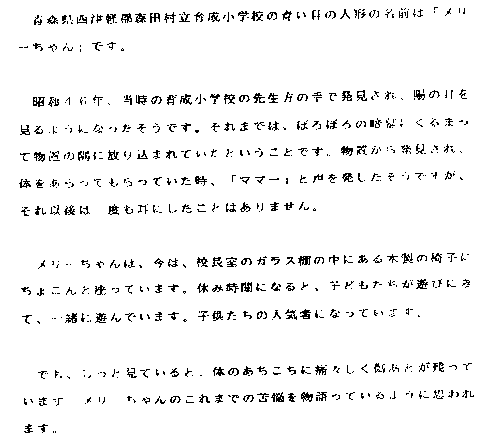 青森県西津軽郡森田村立育成小学校の青い目の人形の名前は「メリ
ーちゃん」です。
昭和46年、当時の育成小学校の先生方の手で発見され、陽の目を
見るようになったそうです。それまでは、ぼろぼろの暗幕にくるまっ
て物置の隅に放り込まれていたということです。物置から発見され、
体をあらってもらっていた時、「ママー」と声を発したそうですが、
それ以後は一度も耳にしたことはありません。
メリーちゃんは、今は、校長室のガラス棚の中にある木製の椅子に
ちょこんと座っています。休み時間になると、子どもたちが遊びにき
て、一緒に遊んでいます。子供たちの人気者になっています。
でも、じっと見ていると、体のあちこちに痛々しく傷あとが残って
います。メリーちゃんのこれまでの苦悩を物語っているように思われ
ます。